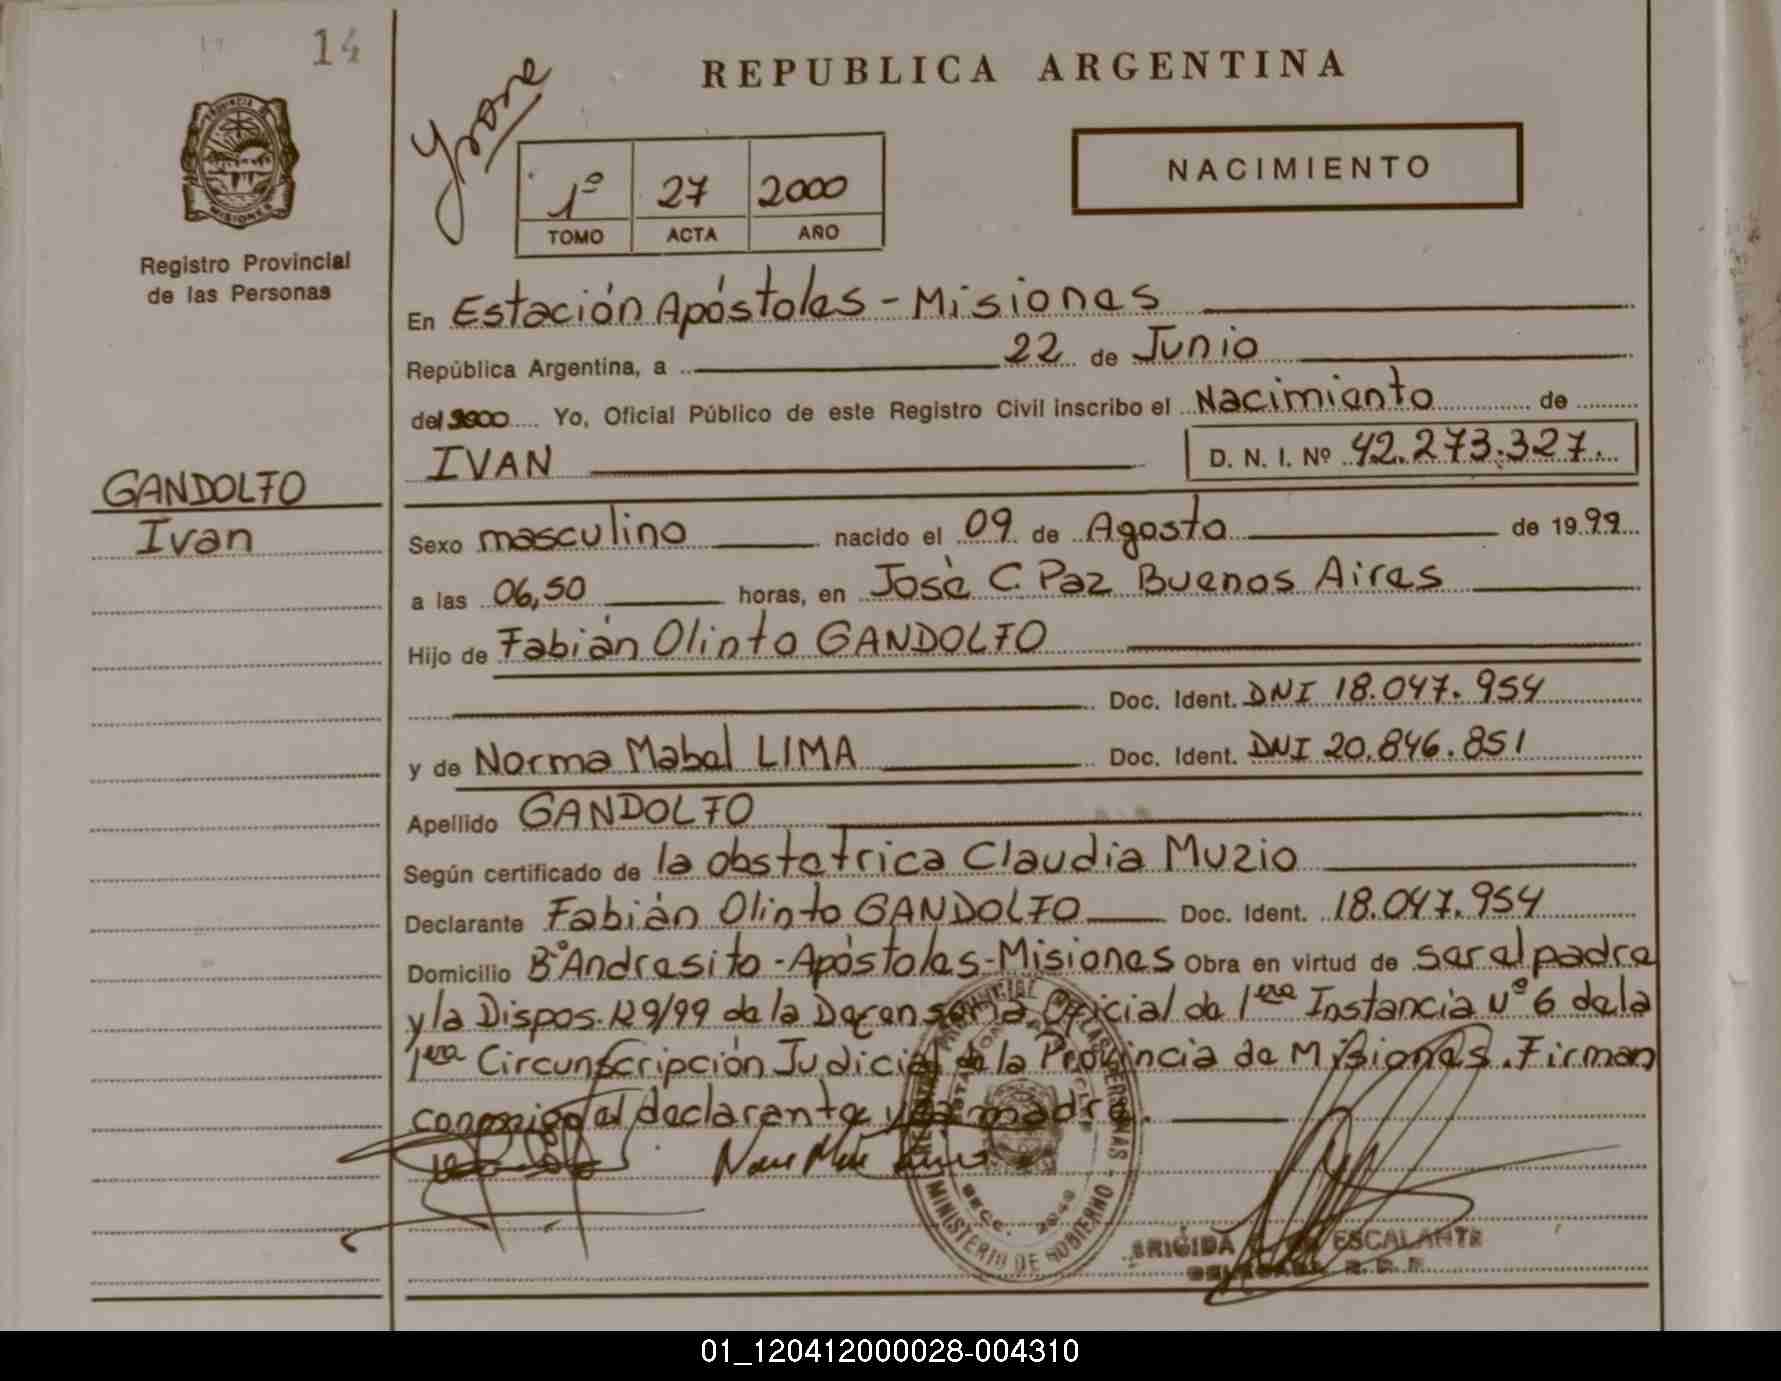 14
REPUBLICA ARGENTINA
NACIMIENTO
PROVINCIA DE
MISIONES
Registro Provincial
de las Personas
1º 27 2000
TOMO ACTA AÑO
En Estación Apóstoles - Misiones
República Argentina, a 22 de Junio
del 2000 Yo, Oficial Público de este Registro Civil inscribo el Nacimiento de
IVAN D. N. I. Nº 42.273.327.
GANDOLFO
Ivan
Sexo masculino nacido el 09 de Agosto de 1999
a las 06,50 horas, en José C. Paz Buenos Aires
Hijo de Fabián Olinto GANDOLFO
Doc. Ident. DNI 18.047.954
y de Norma Mabel LIMA Doc. Ident. DNI 20.846.851
Apellido GANDOLFO
Según certificado de la obstetrica Claudia Muzio
Declarante Fabián Olinto GANDOLFO Doc. Ident. 18.047.954
Domicilio Bº Andresito - Apóstoles - Misiones Obra en virtud de ser el padre
y la Dispos. 129/99 de la Defensoria Oficial de 1era Instancia Nº 6 de la
1era Circunscripción Judicial de la Provincia de Misiones. Firman
conmigo el declarante y la madre.
MINISTERIO DE GOBIERNO
BRIGIDA ESCALANTE
01_120412000028-004310